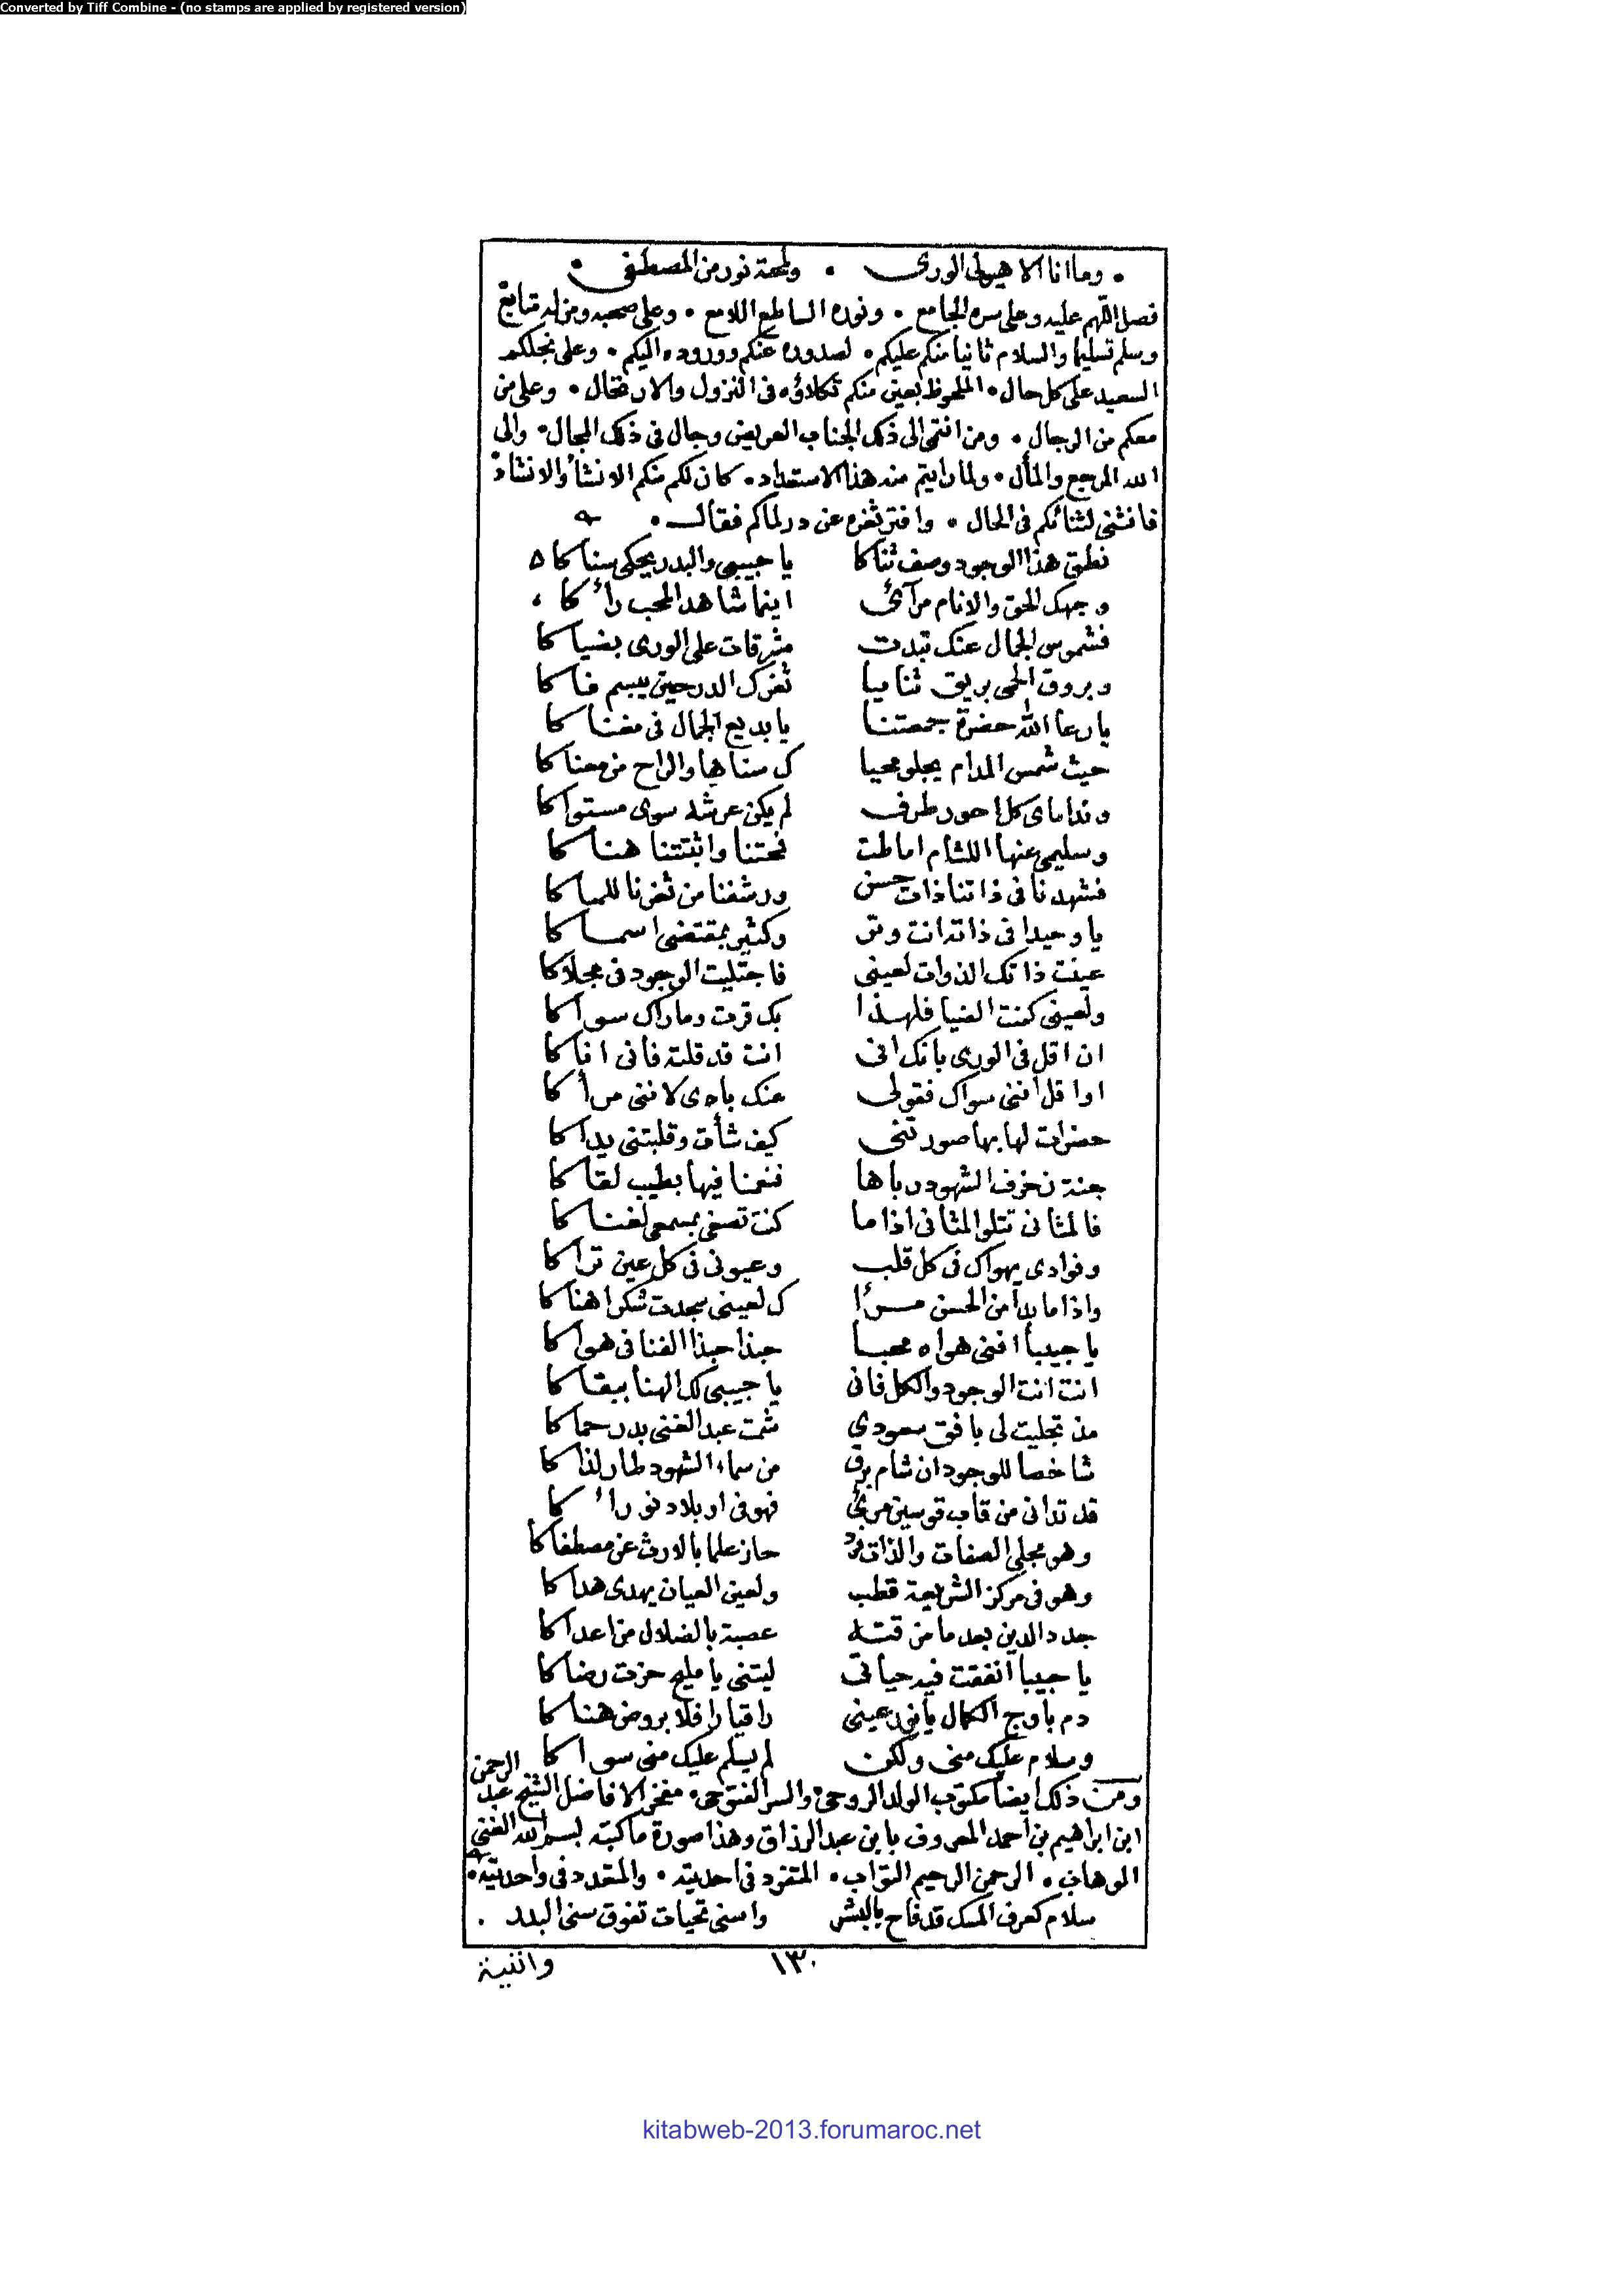 Converted by Tiff Combine - (no stamps are applied by registered version)
• وما انا الا هيولى الورى • ولمحة نور من المصطفى •
فصل اللهم عليه وعلى سره الجامع • ونوره الساطع اللامع • وعلى صحبه ومن له متابع
وسلم تسليما والسلام ثانيا منكم عليكم • لصدوره عنكم ووروده اليكم • وعلى نجلكم
السعيد على كل حال • الملحوظ بعين منكم تكلاؤه فى النزول والارتحال • وعلى من
معكم من الرجال • ومن انتمى الى ذلك الجناب العريض وجال فى ذلك المجال • والى
الله المرجع والمأل • ولما رايتم منه هذا الاستعداد • كان لكم منكم الانشأ والانشاد
فانثنى لثنائكم فى الحال • وافتر ثغره عن در لماكم فقال •
نطق هذا الوجود وصف ثناكا يا حبيبي والبدر يحكى سناكا
وجهك الحق والانام مرآئ اينما شاهد المحب رأكا
فشموس الجمال عنك تبدت مشرقات على الورى بضياكا
وبروق الحمى بريق ثنايا ثغرك الدر حين يبسم فاكا
يا رعا الله حضرة جمعتنا يا بديع الجمال فى مغناكا
حيث شمس المدام يجلو محيا ك سناها والراح من معناكا
ونداماى كل احور طرف لم يكن عرشه سوى مستواكا
وسليمى عنها اللثام اماطت فمحتنا واثبتتنا هناكا
فشهدنا فى ذاتنا ذات حسن ورشفنا من ثغرنا للماكا
يا وحيدا فى ذاته انت وتر وكثير بمقتضى اسماكا
عينت ذاتك الذوات لعينى فاجتليت الوجود فى مجلاكا
ولعينى كنت الضيا فلهذا بك قرت وما رأك سواكا
ان اقل فى الورى بانك انى انت قد قلته فانى افاكا
اوا قل اننى سواك فقولى عنك بادى لاننى مرأكا
حضرات لها بها صورتنى كيف شأت وقلبتنى يداكا
جنة زخرف الشهود رباها فنعمنا فيها بطيب لقاكا
فالمثانى تتلو المثانى اذا ما كنت تصغى بسمعى لغناكا
وفوادى يهواك فى كل قلب وعيونى فى كل عين تراكا
واذا ما بدأ من الحسن مرأ ك لعينى سجدت شكرا هناكا
يا حبيبا افنى هواه محبا حبذا حبذا الفنا فى هواكا
انت انت الوجود والكل فانى يا حبيبى لك الهنا ببقاكا
مذ تجليت لى بافق سعودي شمت عبد الغنى بدر حماكا
شاخصا للوجود ان شام برق من سماء الشهود طار لذاكا
قد تدانى من قاب قوسين قربى فهو فى او بلاد نو رأكا
وهو مجلى الصفات والذات فرد حاز علما بالارث عن مصطفاكا
وهو فى مركز الشريعة قطب ولعين العيان يهدى هداكا
جدد الدين بعد ما من قتله عصبة بالضلال من اعداكا
يا حبيبا انفقت فيه حياتى ليتنى يا مليح حزت رضاكا
دم باوج الكمال يا نور عينى راقيا رافلا بروض هناكا
وسلام عليك منى ولكن لم يسلم عليك منى سواكا
ومن ذلك ايضا مكتوب الولد الروحى • والسر الفتوحى • مفخر الافاضل الشيخ عبد الرحمن
ابن ابراهيم بن احمد المعروف بابن عبد الرزاق وهذا صورة ما كتبه بسم الله الغنى
الوهاب • الرحمن الرحيم التواب • المتفرد فى احديته • والمتعدد فى واحديته •
سلام كعرف المسك قد فاح بالبشر واسنى تحيات تفوق سنى البدر .
١٣٠
واثنية
kitabweb-2013.forumaroc.net